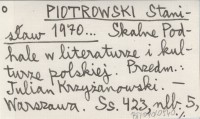 PIOTROWSKI Stani-
sław 1970... Skalne Pod-
hale w literaturze i kul-
turze polskiej. Przedm.:
Julian Krzyżanowski. —
Warszawa. Ss. 423, nlb. 5,